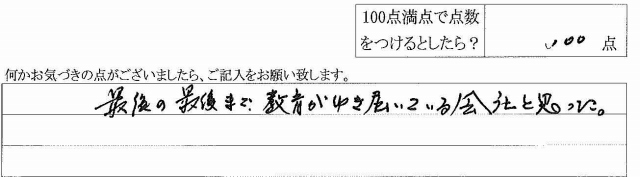 100点満点で点数
をつけるとしたら？
100 点
何かお気づきの点がございましたら、ご記入をお願い致します。
最後の最後まで教育がゆき届いている会社と思った。